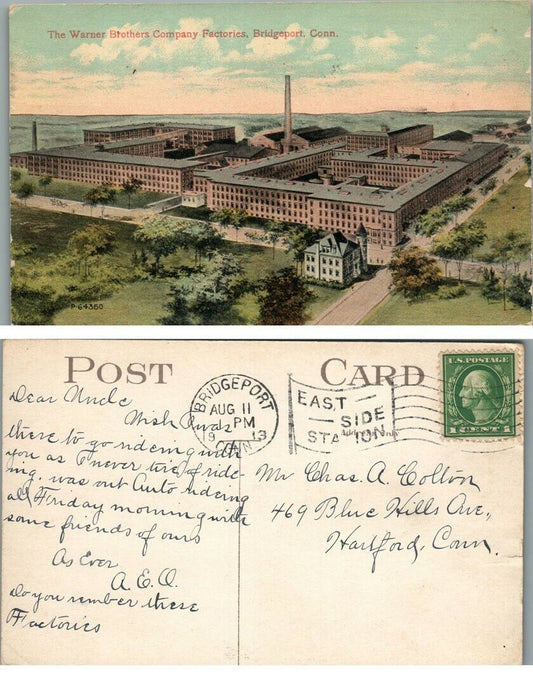 The Warner Brothers Company Factories, Bridgeport, Conn.
P-64360
POST CARD
BRIDGEPORT
AUG 11
2 PM
19 13
CONN.
EAST
SIDE
STATION
U.S. POSTAGE
1 CENT 1
Dear Uncle
Wish I was
there to go rideing with
you as I never tire of ride-
ing. was out Auto rideing
all Friday morning with
some friends of ours
As Ever
A. E. O.
do you rember these
Factories
Mr Chas. A. Colton
469 Blue Hills Ave.,
Hartford, Conn.